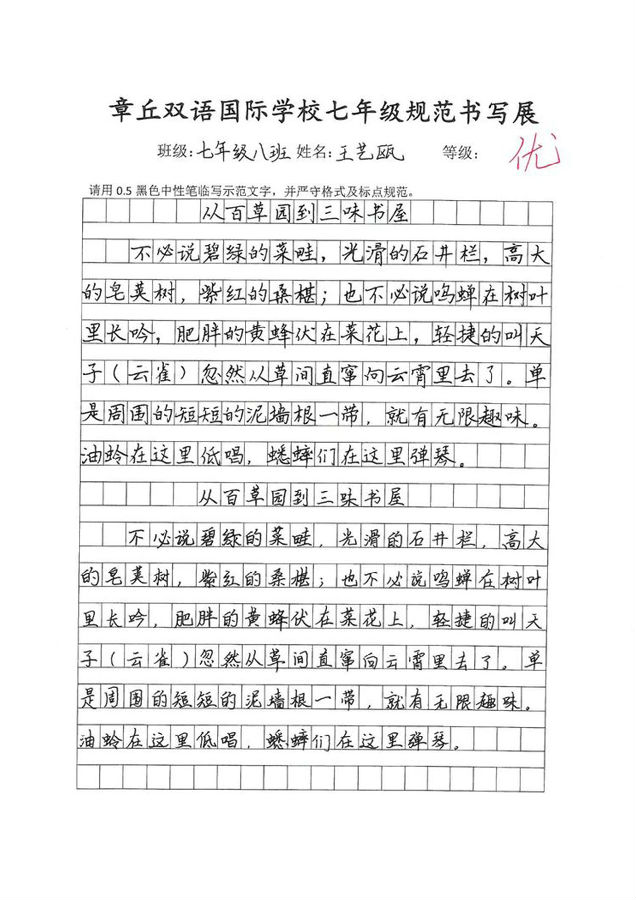 章丘双语国际学校七年级规范书写展
班级:七年级八班 姓名:王艺瓯 等级: 优
请用 0.5 黑色中性笔临写示范文字，并严守格式及标点规范。
从百草园到三味书屋
不必说碧绿的菜畦，光滑的石井栏，高大
的皂荚树，紫红的桑椹；也不必说鸣蝉在树叶
里长吟，肥胖的黄蜂伏在菜花上，轻捷的叫天
子（云雀）忽然从草间直窜向云霄里去了。单
是周围的短短的泥墙根一带，就有无限趣味。
油蛉在这里低唱，蟋蟀们在这里弹琴。
从百草园到三味书屋
不必说碧绿的菜畦，光滑的石井栏，高大
的皂荚树，紫红的桑椹；也不必说鸣蝉在树叶
里长吟，肥胖的黄蜂伏在菜花上，轻捷的叫天
子（云雀）忽然从草间直窜向云霄里去了。单
是周围的短短的泥墙根一带，就有无限趣味。
油蛉在这里低唱，蟋蟀们在这里弹琴。